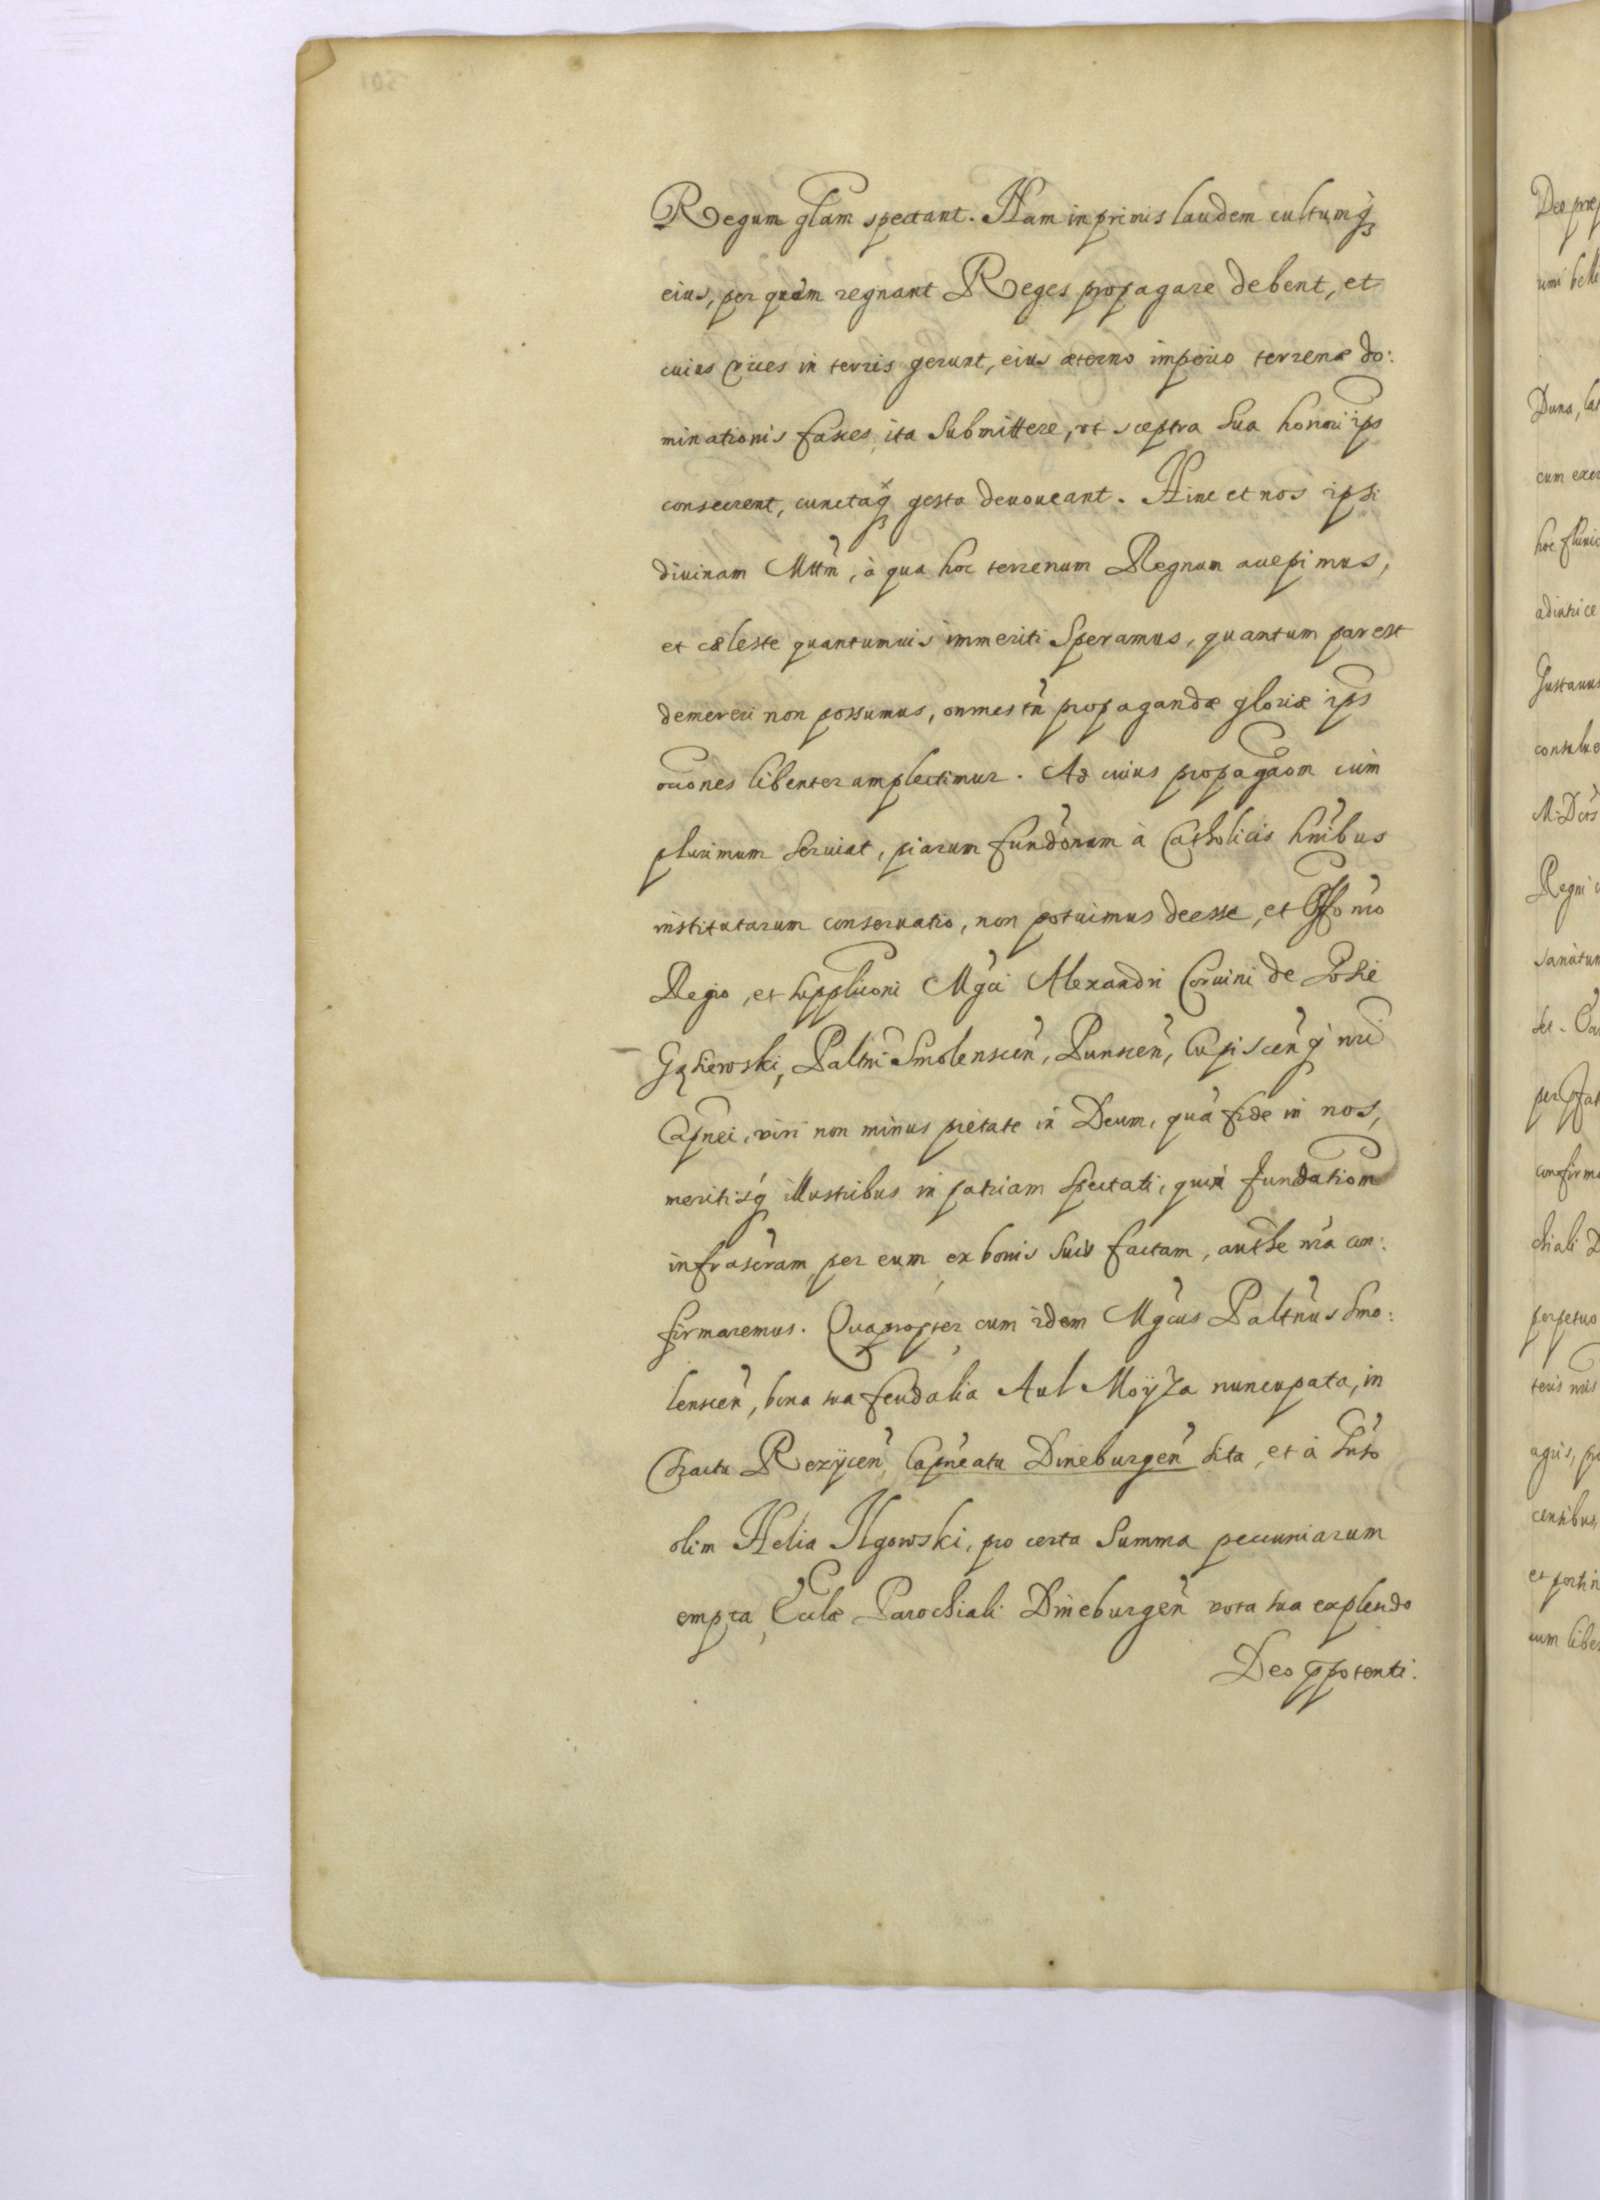 Regum glam spectant. Nam inprimis laudem cultumq;
eius, per quem regnant Reges propagare debent, et
cuius vices in terris gerunt, eius æterno imperio terrenæ do:
minationis fasces ita submittere, vt sceptra sua honori ips
consecrent, cunctaq; gesta deuoueant. Hinc et nos ipsi
diuinam Mttm, à qua hoc terrenum Regnum accepimus,
et cæleste quantumuis immeriti speramus, quantum par est
demereri non possumus, omnes tn propagandæ gloriæ ips
occones libenter amplectimur. Ad cuius propagaom cùm
plurimum seruiat, piarum fundonum à Catholicis hnibus
institutarum conseruatio, non potuimus deesse, et Offo nro
Regio, et supplicōni Mgci Alexandri Coruini de Gosie
Gąsiewski, Paltni Smolenscen, Punscen, Cupiscenq nri
Capnei, viri non minus pietate in Deum, quà fide in nos,
meritisq illustribus in patriam spectati, quin fundationem
infrascram per eum ex bonis suis factam, authe nra con:
firmaremus. Quapropter cum idem Mgcus Paltnus Smo:
lenscen, bona sua feudalia Aul Moyza nuncupata, in
Tractu Rezycen, Capneatu Dineburgen sita, et à Gnso
olim Helia Ilgowski, pro certa summa pecuniarum
empta, Ecclæ Parochiali Dineburgen vota sua explendo
Deo ppotenti:
Deo
Duna,
cum
hoc
Gustauus
Regni
confirma
perpetuo